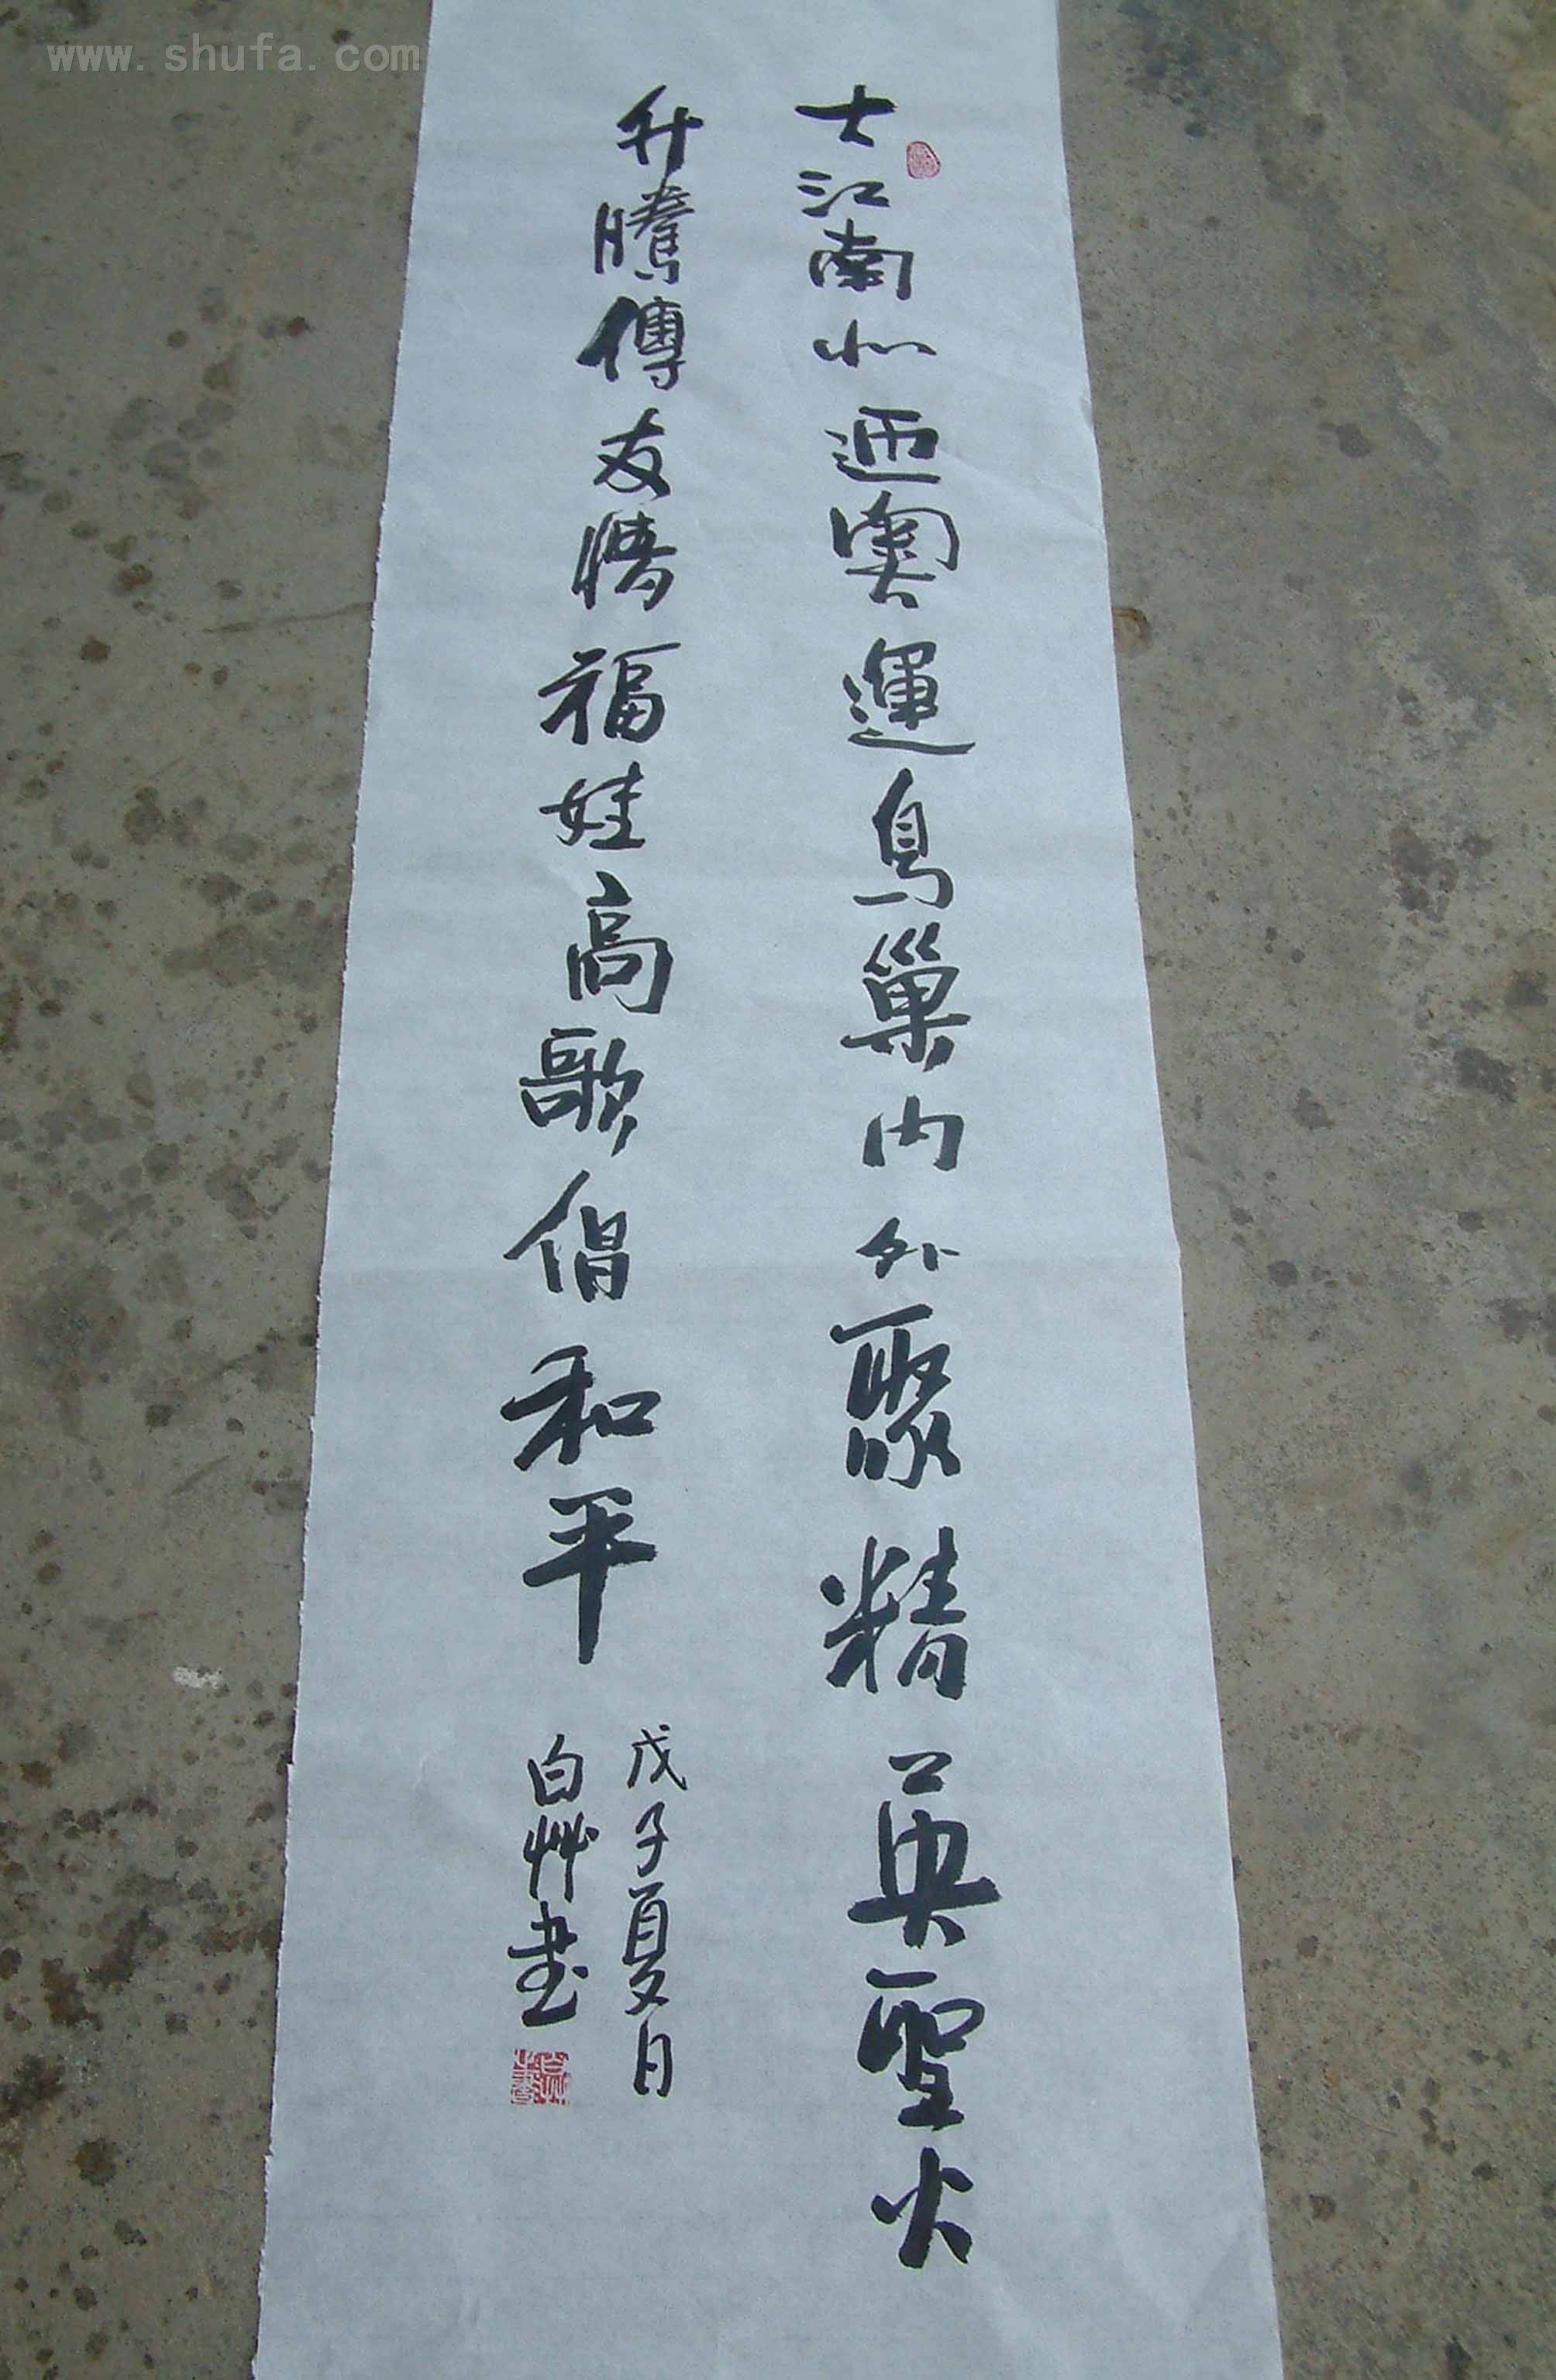 www.shufa.com
大江南北迎奧運鳥巢內外聚精英聖火
升騰傳友情福娃高歌倡和平
戊子夏月
白艸书